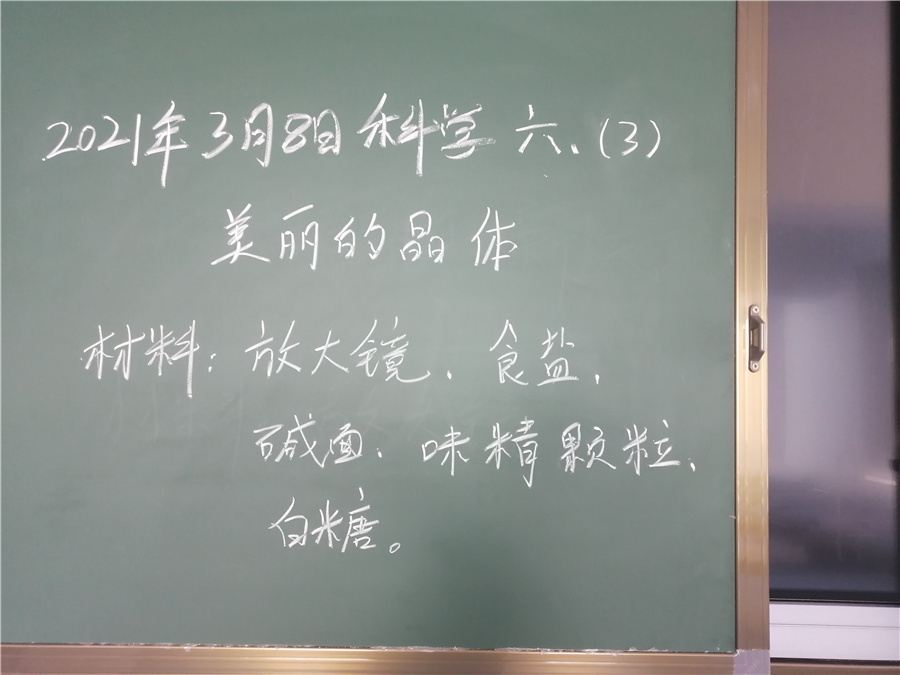 2021年3月8日科学 六、(3)
美丽的晶体
材料：放大镜、食盐、
碱面、味精颗粒、
白糖。